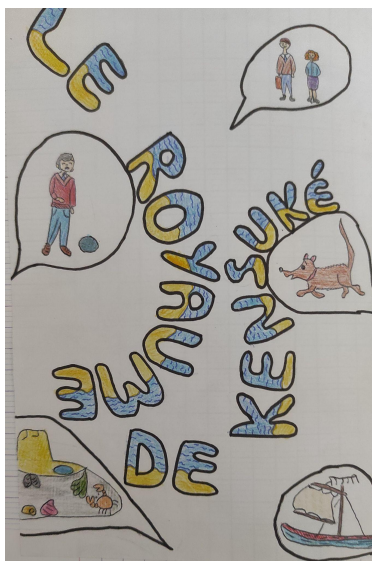 LE
ROYAUME
DE
KENSUKÉ